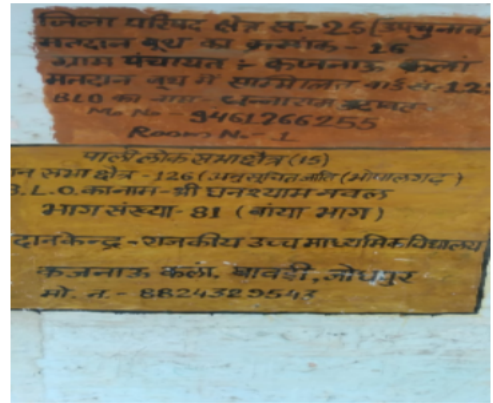 जिला परिषद क्षेत्र स.-25 (उपचुनाव
मतदान बुथ का क्रमांक - 16
ग्राम पंचायत : कजनाऊ कलां
मतदान बुथ में सम्मिलित वार्ड स.-125
BLO का नाम -
Mo No - 9461766255
Room No - 1
पाली लोक सभा क्षैत्र (15)
न सभा क्षैत्र - 126 (अनुसूचित जाति (भोपालगढ)
B.L.O. का नाम - श्री घनश्याम नवल
भाग संख्या - 81 (बांया भाग)
दान केन्द्र - राजकीय उच्च माध्यमिक विद्यालय
कजनाऊ कलां, बावडी, जोधपुर
मो. न. - 8824329543